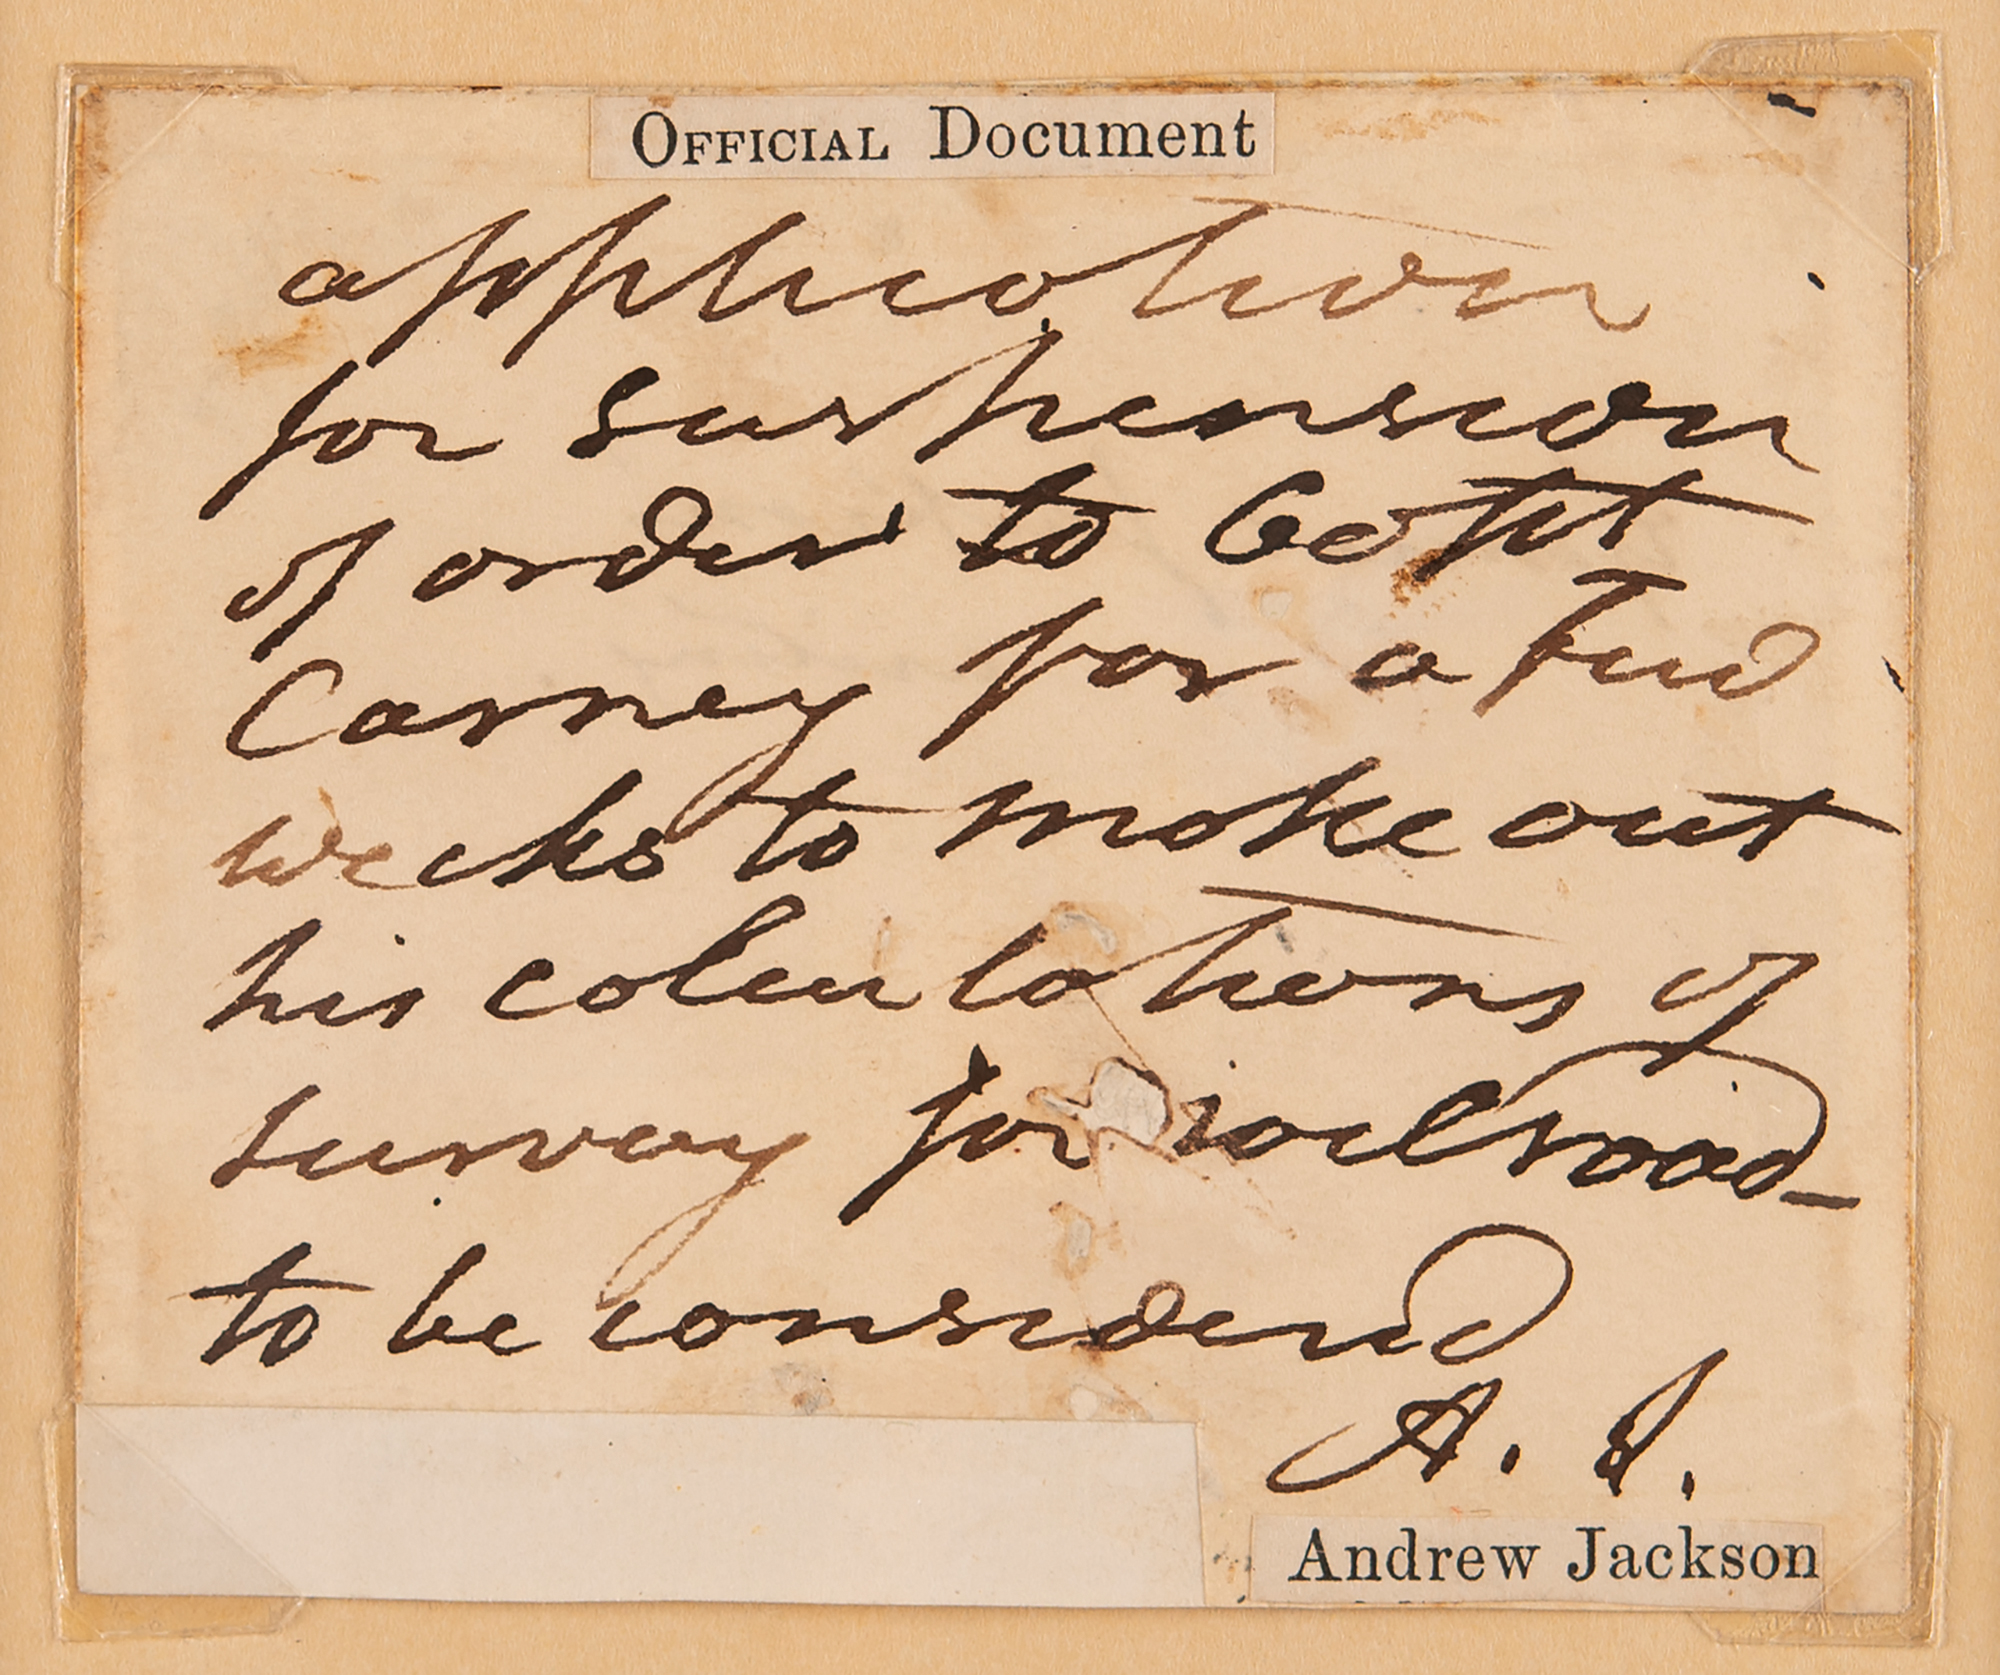 OFFICIAL Document
application
for suspension
of orders to Capt
Carney for a few
weeks to make out
his calculations of
survay for railroad
to be considered
A. J.
Andrew Jackson